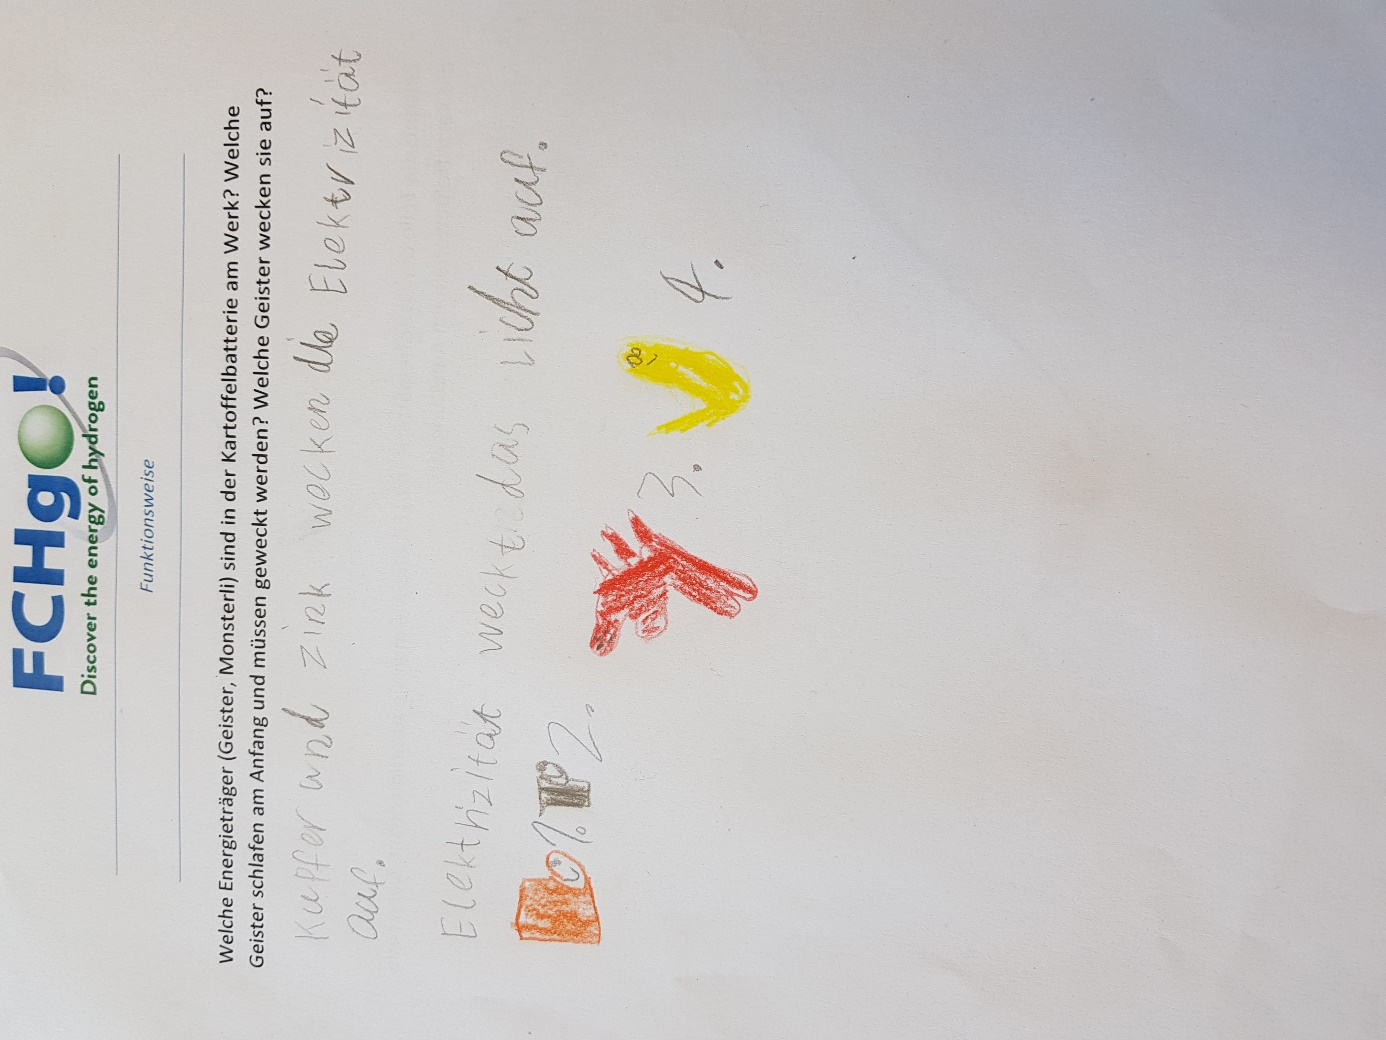 FCHgO!
Discover the energy of hydrogen
Funktionsweise
Welche Energieträger (Geister, Monsterli) sind in der Kartoffelbatterie am Werk? Welche
Geister schlafen am Anfang und müssen geweckt werden? Welche Geister wecken sie auf?
Kupfer und Zink wecken die Elektrizität
auf.
Elekthizität weckt das Licht auf.
1. 2. 3. 4.